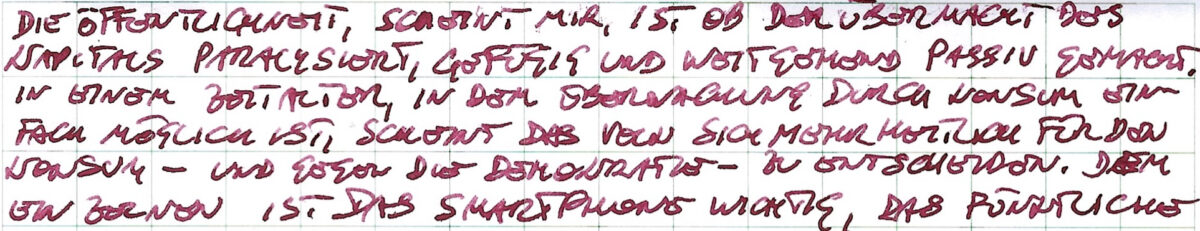 DIE ÖFFENTLICHKEIT, SCHEINT MIR, IST OB DER ÜBERMACHT DES
KAPITALS PARALYSIERT, GEFÜGIG UND WEITGEHEND PASSIV GEMACHT.
IN EINEM ZEITALTER, IN DEM ÜBERWACHUNG DURCH KONSUM EIN-
FACH MÖGLICH IST, SCHEINT DAS VOLK SICH MEHRHEITLICH FÜR DEN
KONSUM – UND GEGEN DIE DEMOKRATIE – ZU ENTSCHEIDEN. DEM
EINZELNEN IST DAS SMARTPHONE WICHTIG, DAS PÜNKTLICHE